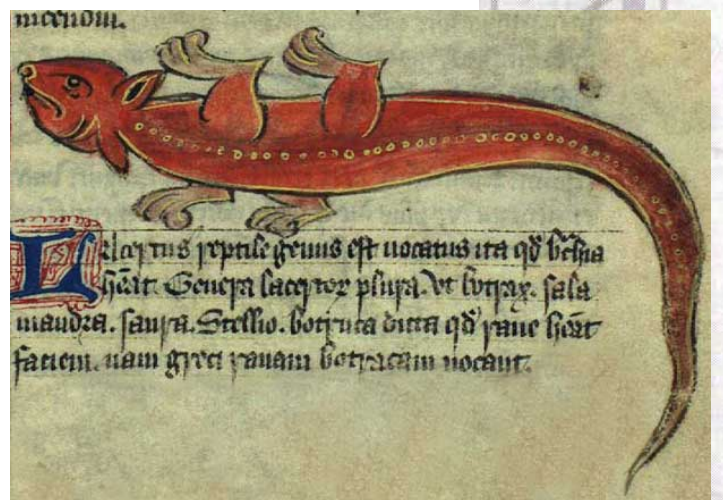 incendiu.
Lacertus reptile genus est uocatus ita qđ bͬchia
heāt. Genera lacertoꝝ plura. Vt botrax. sala
mandra. saura. Stellio. botruca dicta qđ rane heāt
faciem. nam greci ranam botracam uocant.